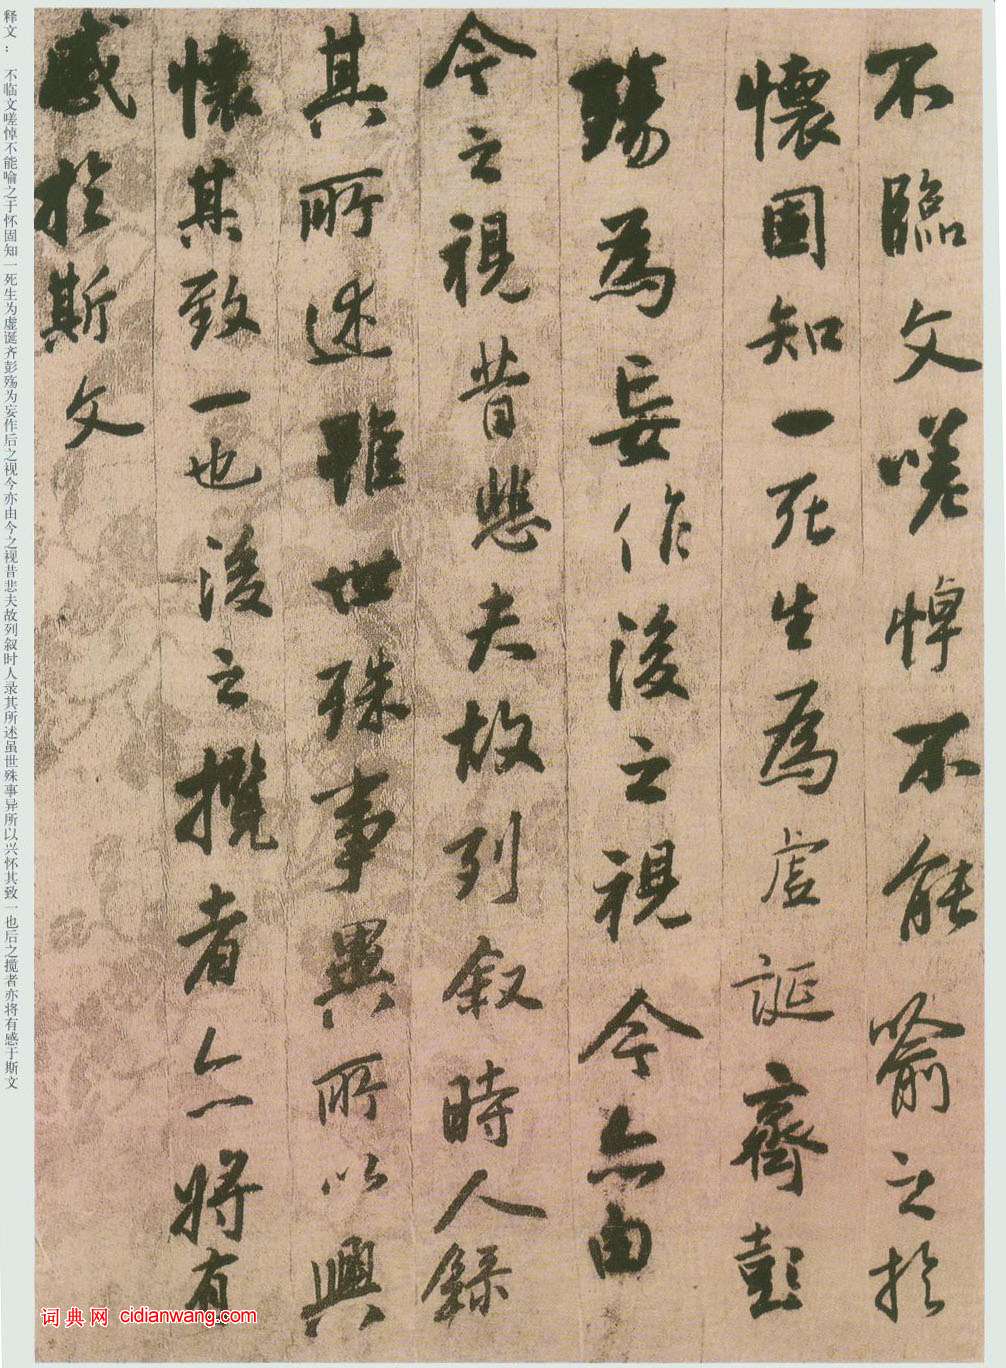 不臨文嗟悼不能喻之於
懷固知一死生為虛誕齊彭
殤為妄作後之視今亦由
今之視昔悲夫故列叙時人録
其所述雖世殊事異所以興
懷其致一也後之攬者亦將有
感於斯文
释文：不临文嗟悼不能喻之于怀固知一死生为虚诞齐彭殇为妄作后之视今亦由今之视昔悲夫故列叙时人录其所述虽世殊事异所以兴怀其致一也后之揽者亦将有感于斯文
词典网 cidianwang.com